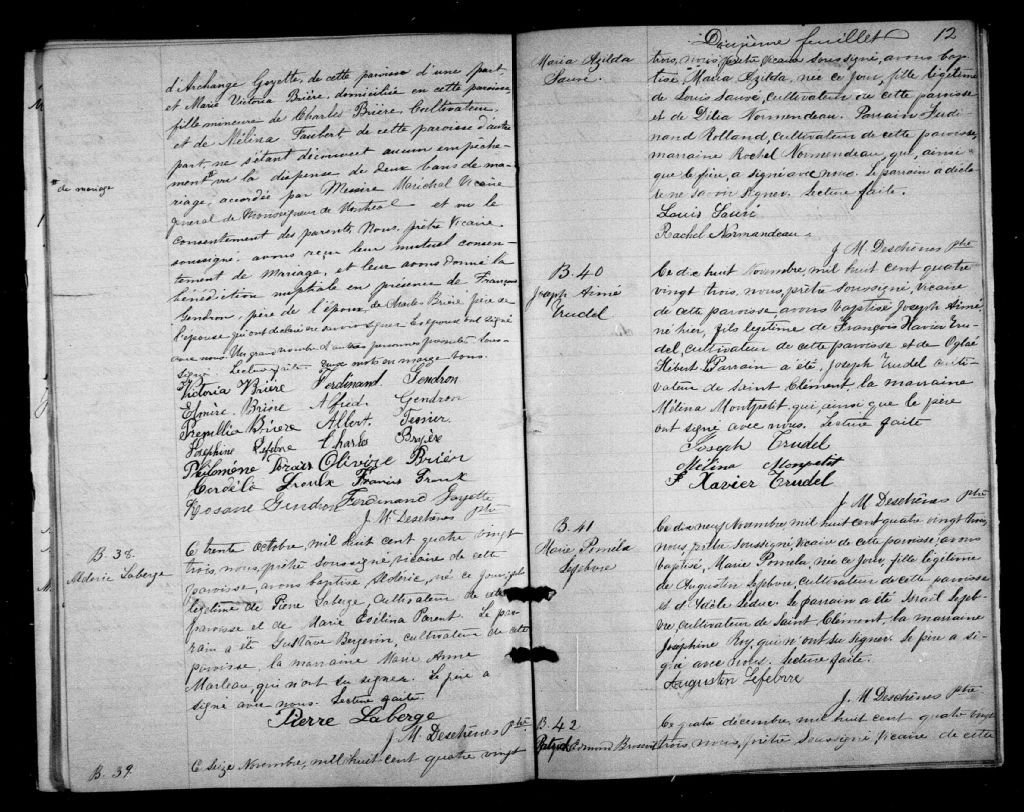 d'Archange Goyette, de cette paroisse d'une part,
et Marie Victoria Brière, domiciliée en cette paroisse,
fille mineure de Charles Brière, Cultivateur,
et de Mélina Faubert de cette paroisse d'autre
part, ne s'étant découvert aucun empêche-
ment vu la dispense de deux bans de ma-
# de mariage
riage, accordée par Messire Maréchal Vicaire
général de Monseigneur de Montréal et vu le
consentement des parents, Nous, prêtre Vicaire
soussigné, avons reçu leur mutuel consen-
tement de Mariage, et leur avons donné la
bénédiction nuptiale en présence de François
Gendron, père de l'époux, de Charles Brière père de
l'épouse qui ont déclaré ne savoir signer. Les époux ont signé
avec nous. Un grand nombre d'autres personnes présentes sous-
signé. Lecture faite. Deux mots en marge bons.
Victoria Brière Ferdinand Gendron
Elmire Brière Alfred Gendron
Brière Albert
Joséphine Lefebvre Charles Bryère
Philomène Olivine Brièr
Cordélia Proulx Francis Proulx
Rosane Gendron Ferdinand Goyette
J. M. Deschênes ptre
B. 38.
Médéric Laberge
Ce trente octobre, mil huit cent quatre vingt
trois, nous, prêtre soussigné, vicaire de cette
paroisse, avons baptisé Médéric, né ce jour, fils
légitime de Pierre Laberge, Cultivateur de cette
paroisse et de Marie Evélina Parent. Le par-
rain a été Gustave Bergevin, cultivateur de cette
paroisse, la marraine Marie Anne
Marleau, qui n'ont su signer. Le père a
signé avec nous. Lecture faite.
Pierre Laberge
J. M. Deschênes ptre
B. 39.
Ce seize Novembre, mil huit cent quatre vingt
Douzième feuillet 12
Maria Azilda
Sauvé.
trois, nous, prêtre Vicaire soussigné, avons bap-
tisé Maria Azilda, née ce jour, fille légitime
de Louis Sauvé, Cultivateur de cette paroisse
et de Délia Normandeau. Parrain Ferdi-
nand Rolland, Cultivateur de cette paroisse,
marraine Rachel Normandeau, qui, ainsi
que le père, a signé avec nous. Le parrain a décla-
ré ne savoir signer. Lecture faite.
Louis Sauvé
Rachel Normandeau.
J. M. Deschênes ptre
B. 40
Joseph Aimé
Trudel
Ce dix huit Novembre, mil huit cent quatre
vingt trois, nous, prêtre soussigné, Vicaire
de cette paroisse, avons baptisé Joseph Aimé,
né hier, fils légitime de François Xavier Tru-
del, cultivateur de cette paroisse et de Oglaé
Hébert. Le Parrain a été Joseph Trudel culti-
vateur de Saint Clément la marraine
Mélina Montpetit, qui, ainsi que le père
ont signé avec nous. Lecture faite
Joseph Trudel
Mélina Monpetit
F. Xavier Trudel
J. M. Deschênes ptre
B. 41
Marie Poméla
Lefebvre
Ce dix neuf Novembre, mil huit cent quatre vingt trois,
nous, prêtre soussigné, Vicaire de cette paroisse, avons
baptisé, Marie Poméla, née ce jour, fille légitime
de Augustin Lefebvre, cultivateur de cette paroisse
et d'Adèle Leduc. Le parrain a été Israël Lefeb-
vre cultivateur de Saint Clément, la marraine
Joséphine Roy, qui n'ont su signer. Le père a si-
gné avec nous. Lecture faite.
Augustin Lefebvre
J. M. Deschênes ptre
B. 42
Edmond
Ce quatre décembre, mil huit cent quatre vingt
trois, nous, prêtre soussigné, Vicaire de cette